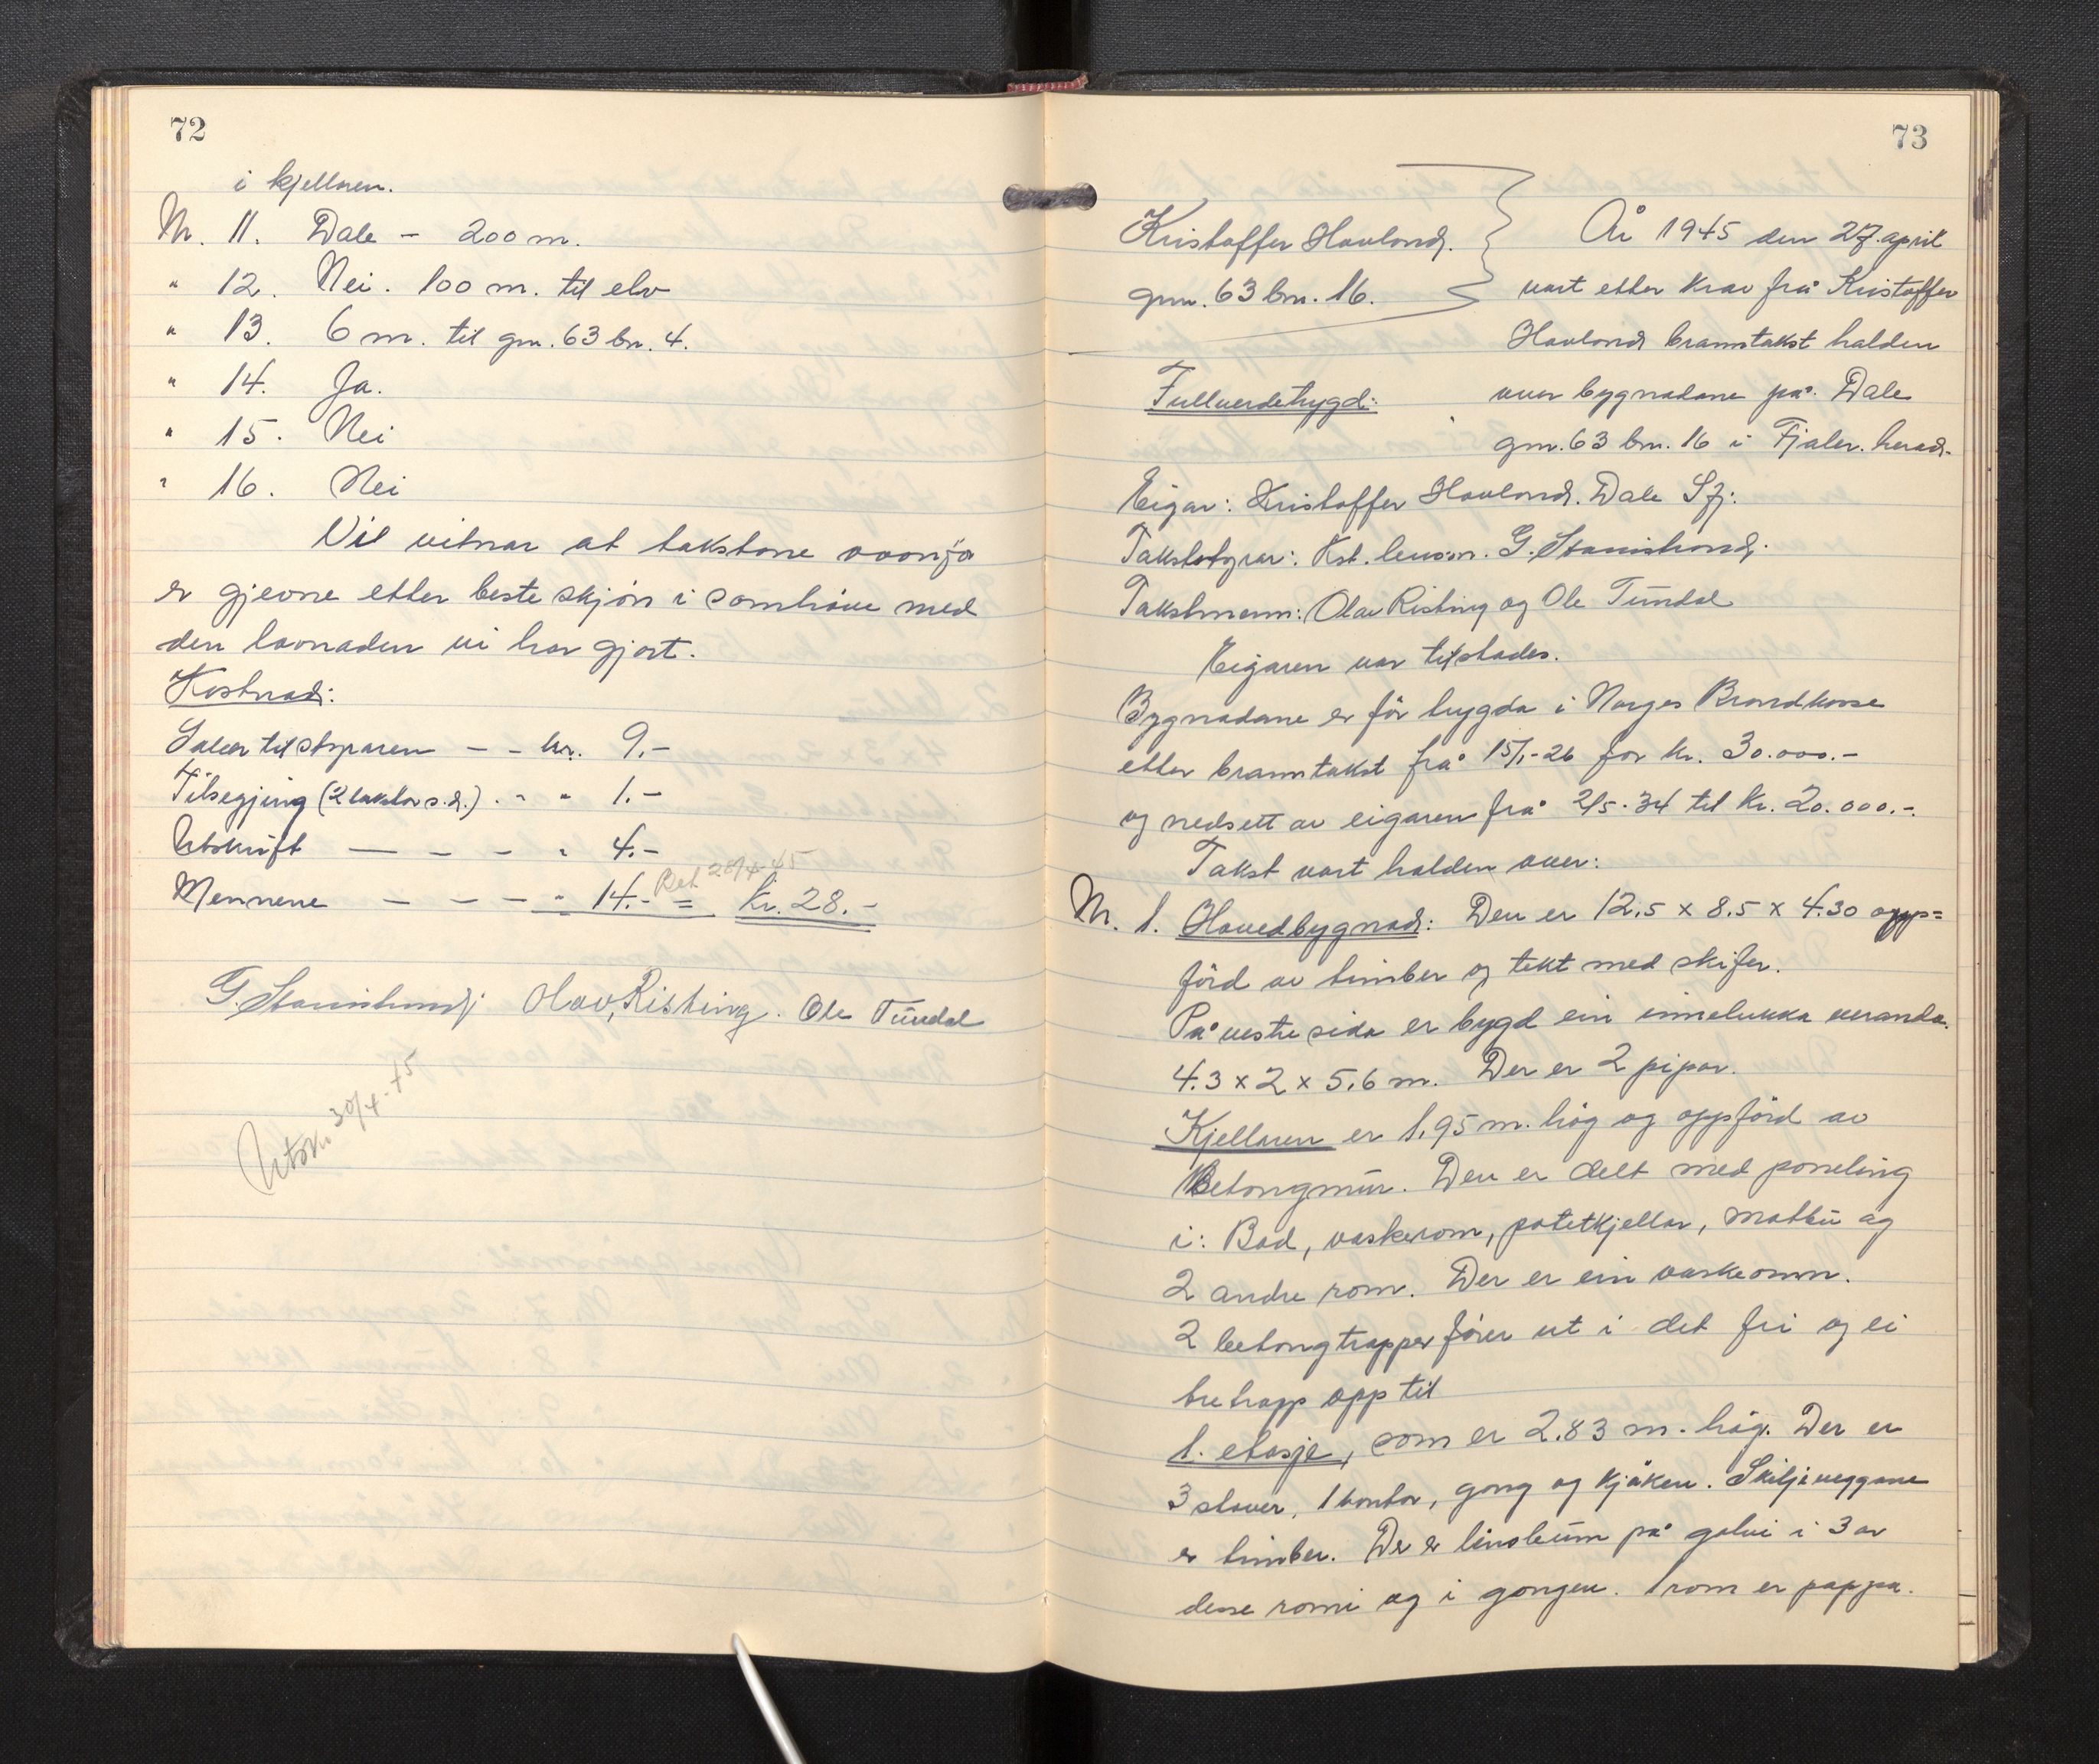 72
i kjellaren.
Nr. 11. Dale - 200 m.
" 12. Nei. 100 m. til elv
" 13. 6 m. til gnr. 63 bn. 4.
" 14. Ja.
" 15. Nei
" 16. Nei
Vil vitnar at takstane ovanfor
er gjevne etter beste skjön i samhöve med
den lovnaden vi har gjort.
Kostnad:
Salær til styraren - - kr. 9.-
Tilsegjing (2 takstar s.d.) . - " 1.-
Utskrift - - - - " 4.-
Mennene - - - - " 14.- = kr. 28.-
Bet 28/4-45
G. Staurstrand Olav Risting. Ole Tundal
Utskr 30/4-45
73
Kristoffer Havland.
gnr. 63 bnr. 16.
År 1945 den 27. april
vart etter krav frå Kristoffer
Havland branntakst halden
Fullverdetrygd:
over bygnadane på Dale
gnr. 63 bnr. 16 i Fjaler herad.
Eigar: Kristoffer Havland. Dale Sfj:
Takststyrar: Kst. lensm. G. Staurstrand.
Takstmenn: Olav Risting og Ole Tundal
Eigaren var tilstades.
Bygnadane er för trygda i Norges Brandkasse
etter branntakst frå 15/1-26 for kr. 30.000.-
og nedsett av eigaren frå 2/5-34 til kr. 20.000.-.
Takst vart halden over:
Nr. 1. Hovedbygnad: Den er 12,5 x 8.5 x 4.30 opp=
förd av timber og tekt med skifer.
På vestre sida er bygd ein innelukka veranda.
4.3 x 2 x 5,6 m. Der er 2 pipor.
Kjellaren er 1,95 m. hög og oppförd av
Betongmur. Den er delt med paneling
i: Bad, vaskerom, potetkjellar, matbu og
2 andre rom. Der er ein vaskeomn.
2 betongtrapper förer ut i det fri og ei
tretrapp opp til
1. etasje, som er 2.83 m. hög. Der er
3 stover, 1 kontor, gong og kjöken. Skiljeveggane
er timber. Der er linoleum på golvi i 3 av
desse romi og i gongen. 1 rom er pappa.